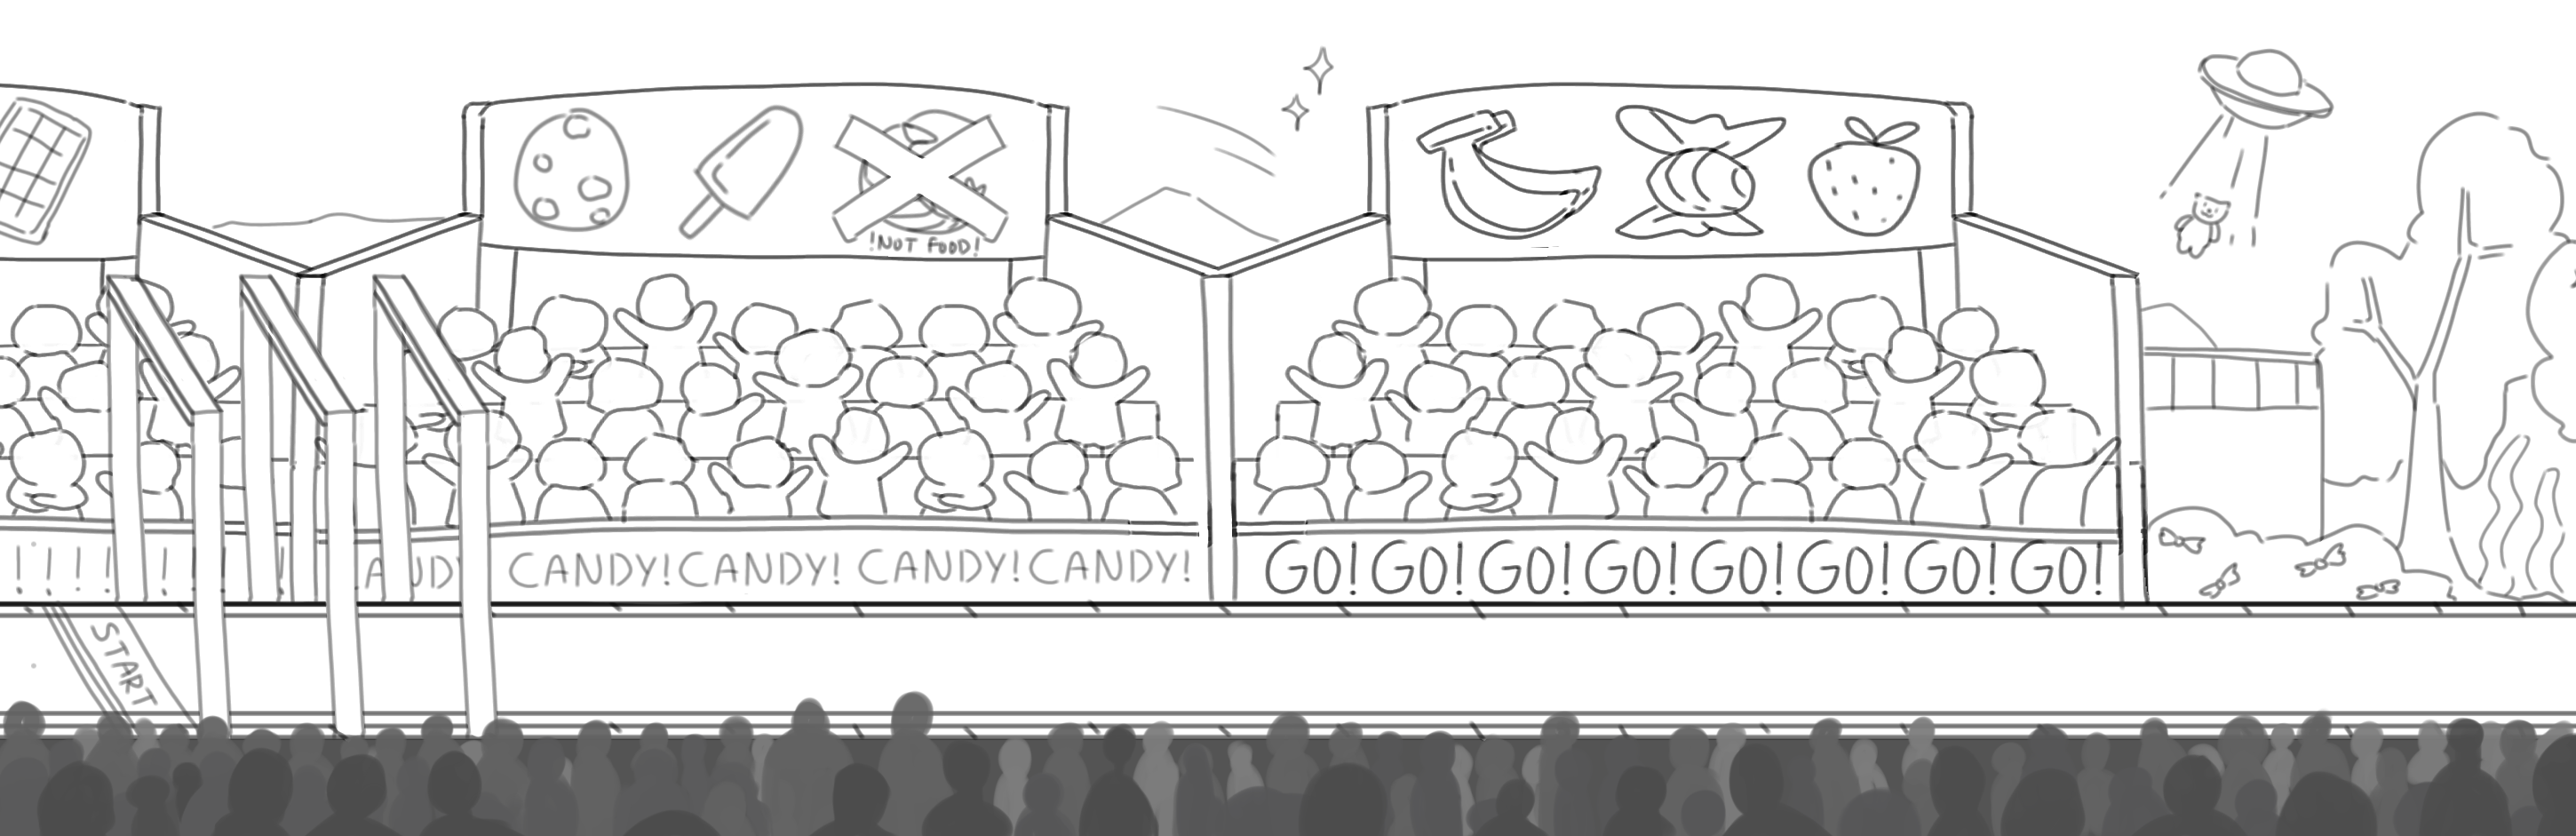 !NOT FOOD!
! ! ! ! ! ! !
CANDY! CANDY! CANDY! CANDY!
GO! GO! GO! GO! GO! GO! GO! GO!
START